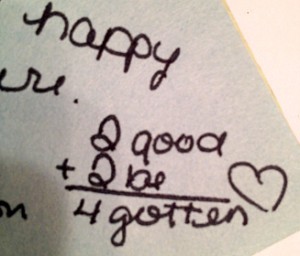 happy
ure.
2 good
+ 2 be
4 gotten
on